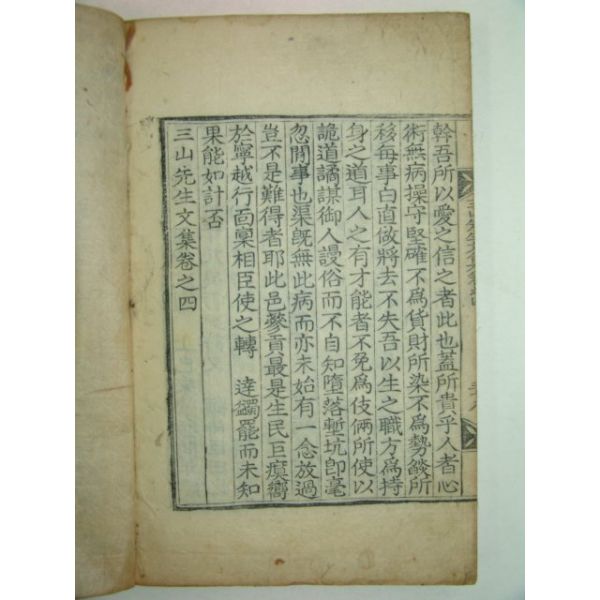 幹吾所以愛之信之者此也蓋所貴乎人者心
術無病操守堅確不爲貨財所染不爲勢燄所
移每事白直做將去不失吾以生之職方爲持
身之道耳人之有才能者不免爲伎倆所使以
詭道譎謀御人謾俗而不自知墮落塹坑卽毫
忽間事也渠旣無此病而亦未始有一念放過
豈不是難得者耶此邑蔘貢最是生民巨瘼嚮
於寧越行面稟相臣使之轉 達蠲罷而未知
果能如計否
三山先生文集卷之四